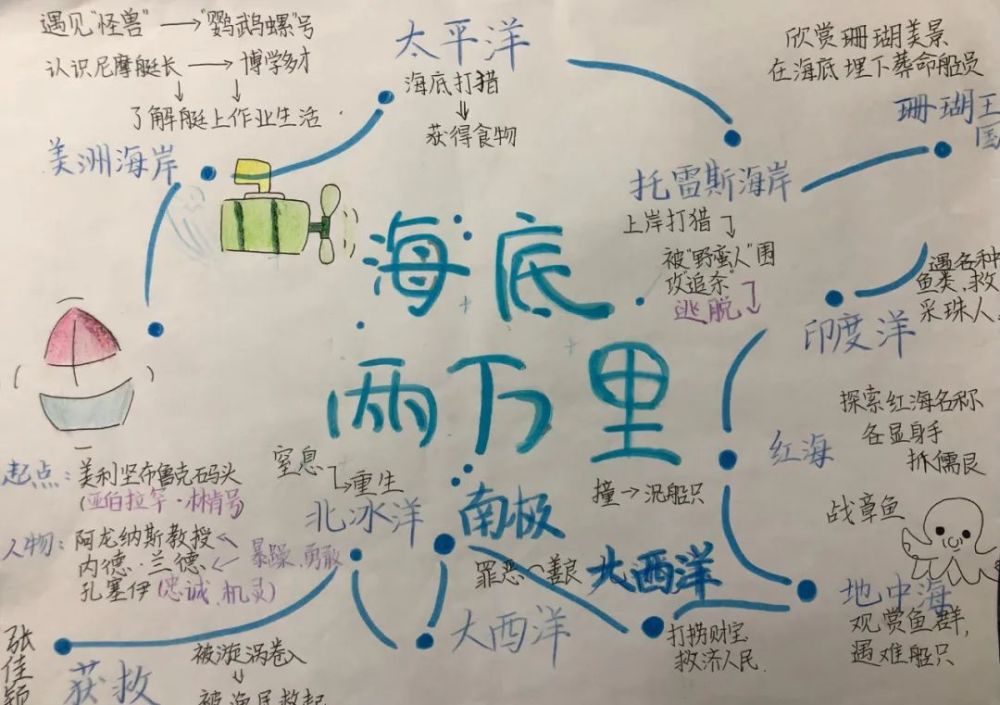 遇见“怪兽”→“鹦鹉螺”号
认识尼摩艇长→博学多才
了解艇上作业生活
美洲海岸
太平洋
海底打猎
获得食物
欣赏珊瑚美景
在海底埋下葬命船员
珊瑚王
国
托雷斯海岸
上岸打猎
被“野蛮人”围
攻“追杀”
逃脱
海底
两万里
遇各种
鱼类,救
采珠人
印度洋
探索红海名称
各显身手
抓儒艮
红海
战章鱼
地中海
观赏鱼群,
遇难船只
撞→沉船只
北西洋
打捞财宝
救济人民.
南极
罪恶→善良
窒息
重生
北冰洋
大西洋
起点:美利坚布鲁克码头
(亚伯拉罕·林肯号)
人物:阿龙纳斯教授
内德·兰德←暴躁、勇敢
孔塞伊(忠诚、机灵)
张佳颖
获救
被漩涡卷入
被渔民救起